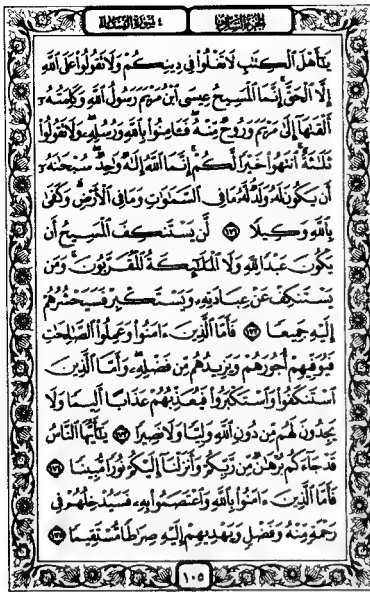 الجزء السادس ٤ سورة النساء
يَٰٓأَهْلَ ٱلْكِتَٰبِ لَا تَغْلُوا۟ فِى دِينِكُمْ وَلَا تَقُولُوا۟ عَلَى ٱللَّهِ
إِلَّا ٱلْحَقَّ ۚ إِنَّمَا ٱلْمَسِيحُ عِيسَى ٱبْنُ مَرْيَمَ رَسُولُ ٱللَّهِ وَكَلِمَتُهُۥٓ
أَلْقَىٰهَآ إِلَىٰ مَرْيَمَ وَرُوحٌ مِّنْهُ ۖ فَـَٔامِنُوا۟ بِٱللَّهِ وَرُسُلِهِۦ ۖ وَلَا تَقُولُوا۟
ثَلَٰثَةٌ ۚ ٱنتَهُوا۟ خَيْرًا لَّكُمْ ۚ إِنَّمَا ٱللَّهُ إِلَٰهٌ وَٰحِدٌ ۖ سُبْحَٰنَهُۥٓ
أَن يَكُونَ لَهُۥ وَلَدٌ ۘ لَّهُۥ مَا فِى ٱلسَّمَٰوَٰتِ وَمَا فِى ٱلْأَرْضِ ۗ وَكَفَىٰ
بِٱللَّهِ وَكِيلًا ١٧١ لَّن يَسْتَنكِفَ ٱلْمَسِيحُ أَن
يَكُونَ عَبْدًا لِّلَّهِ وَلَا ٱلْمَلَٰٓئِكَةُ ٱلْمُقَرَّبُونَ ۚ وَمَن
يَسْتَنكِفْ عَنْ عِبَادَتِهِۦ وَيَسْتَكْبِرْ فَسَيَحْشُرُهُمْ
إِلَيْهِ جَمِيعًا ١٧٢ فَأَمَّا ٱلَّذِينَ ءَامَنُوا۟ وَعَمِلُوا۟ ٱلصَّٰلِحَٰتِ
فَيُوَفِّيهِمْ أُجُورَهُمْ وَيَزِيدُهُم مِّن فَضْلِهِۦ ۖ وَأَمَّا ٱلَّذِينَ
ٱسْتَنكَفُوا۟ وَٱسْتَكْبَرُوا۟ فَيُعَذِّبُهُمْ عَذَابًا أَلِيمًا وَلَا
يَجِدُونَ لَهُم مِّن دُونِ ٱللَّهِ وَلِيًّا وَلَا نَصِيرًا ١٧٣ يَٰٓأَيُّهَا ٱلنَّاسُ
قَدْ جَآءَكُم بُرْهَٰنٌ مِّن رَّبِّكُمْ وَأَنزَلْنَآ إِلَيْكُمْ نُورًا مُّبِينًا ١٧٤
فَأَمَّا ٱلَّذِينَ ءَامَنُوا۟ بِٱللَّهِ وَٱعْتَصَمُوا۟ بِهِۦ فَسَيُدْخِلُهُمْ فِى
رَحْمَةٍ مِّنْهُ وَفَضْلٍ وَيَهْدِيهِمْ إِلَيْهِ صِرَٰطًا مُّسْتَقِيمًا ١٧٥
١٠٥